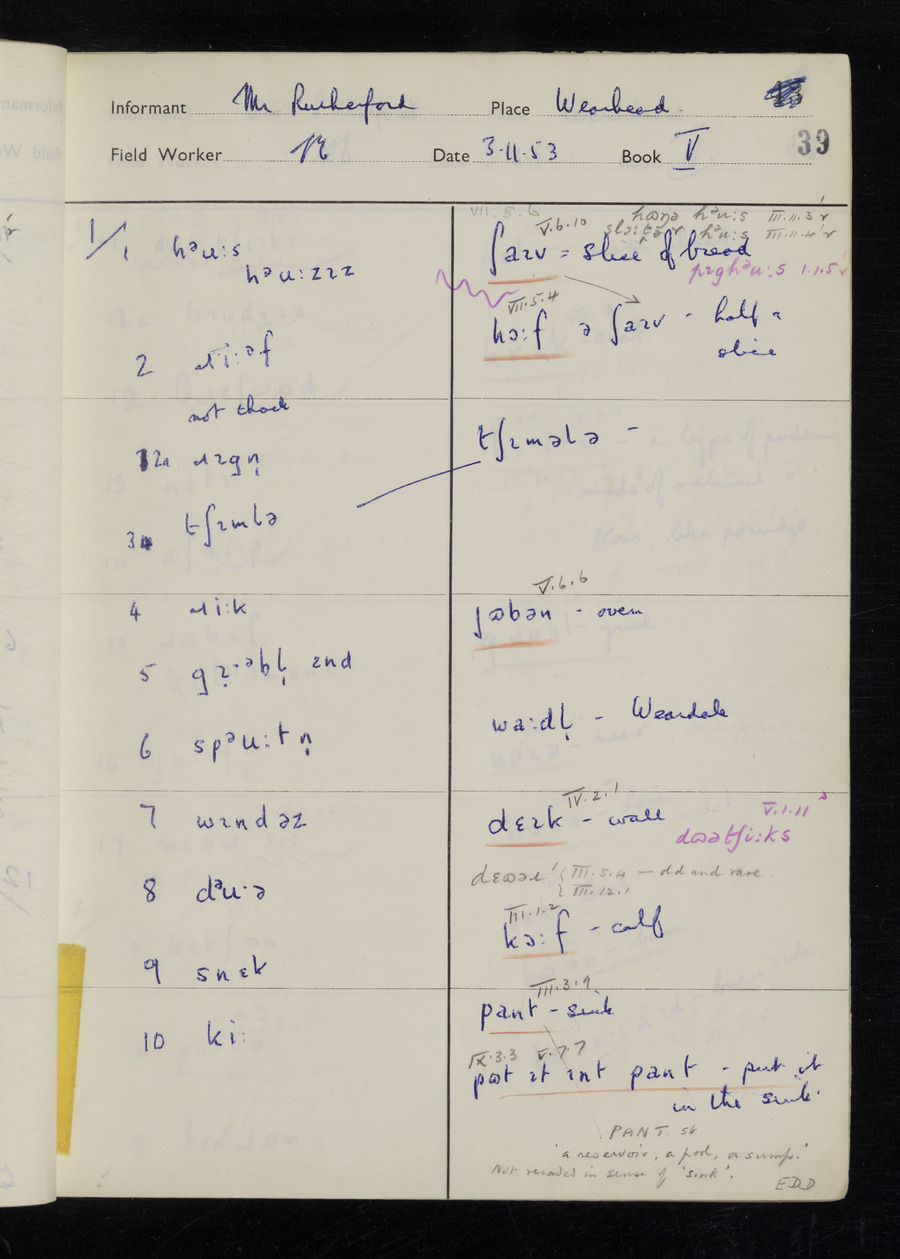 Informant Mr Rutherford Place Wearhead.
Field Worker Date 3.11.53 Book V 39
1/1 hᵊu:s
hᵊu:zɪz
2 ɹi:əf
not thack
2a ɹɪgn̩
3 tʃɪmlə
4 ɹi:k
5 gɛ̣·əbl̩ ɛnd
6 spᵊu:tn̩
7 wɪndəz
8 dᵊu·ə
9 snɛk
10 ki:
VII.5.6
V.6.10
hᵊu:s III.11.3
hᵊu:s III.11.4
ʃaɪv = slice of bread
pɪghᵊu:s 1.1.5
VII.5.4
hɔ:f ə ʃaɪv - half a
slice
tʃɪmələ -
V.6.6
- oven
wa:dl̩ - Weardale
IV.2.1
V.1.11
dɛɪk - wall
III.5.4 — old and rare.
III.12.1
III.1.2
kɔ:f - calf
III.3.9
pant - sink
IX.3.3 V.7.7
pɷt ɪt ɪnt pant - put it
in the sink.
PANT sb
'a reservoir, a pool, a sump.'
Not recorded in sense of 'sink'.
EDD